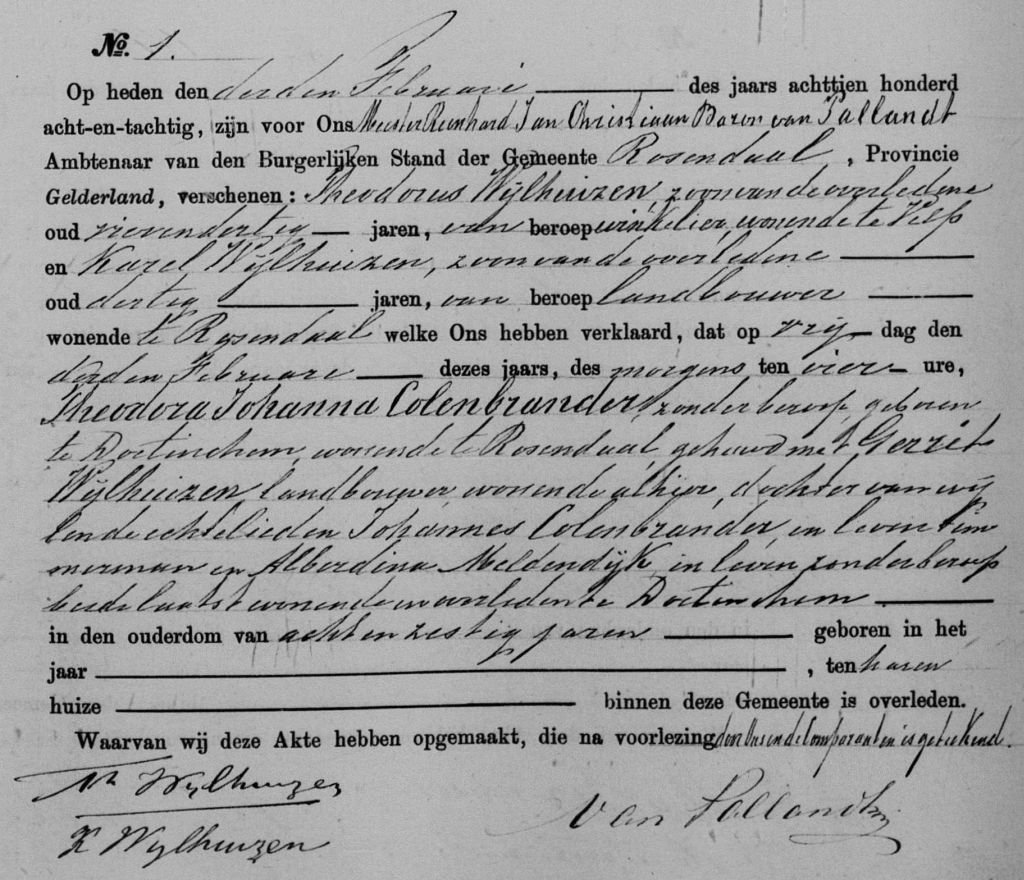 No. 1.
Op heden den derden Februari des jaars achttien honderd
acht-en-tachtig, zijn voor Ons Meester Reinhard Jan Christiaan Baron van Pallandt
Ambtenaar van den Burgerlijken Stand der Gemeente Rosendaal, Provincie
Gelderland, verschenen: Theodorus Wijlhuizen, zoon van de overledene
oud vierendertig jaren, van beroep winkelier, wonende te Velp
en Karel Wijlhuizen, zoon van de overledene
oud dertig jaren, van beroep landbouwer
wonende te Rosendaal welke Ons hebben verklaard, dat op vrij dag den
derden Februari dezes jaars, des morgens ten vier ure,
Theodora Johanna Colenbrander, zonder beroep, geboren
te Doetinchem, wonende te Rosendaal, gehuwd met Gerrit
Wijlhuizen, landbouwer, wonende alhier, dochter van wij
lende echtelieden Johannes Colenbrander, in leven tim
merman en Alberdina Meldendijk, in leven zonder beroep
beide laatst wonende en overleden te Doetinchem
in den ouderdom van acht en zestig jaren geboren in het
jaar , ten haren
huize binnen deze Gemeente is overleden.
Waarvan wij deze Akte hebben opgemaakt, die na voorlezing door Ons en de Comparanten is geteekend.
Th Wijlhuizen
K Wijlhuizen
Van Pallandt